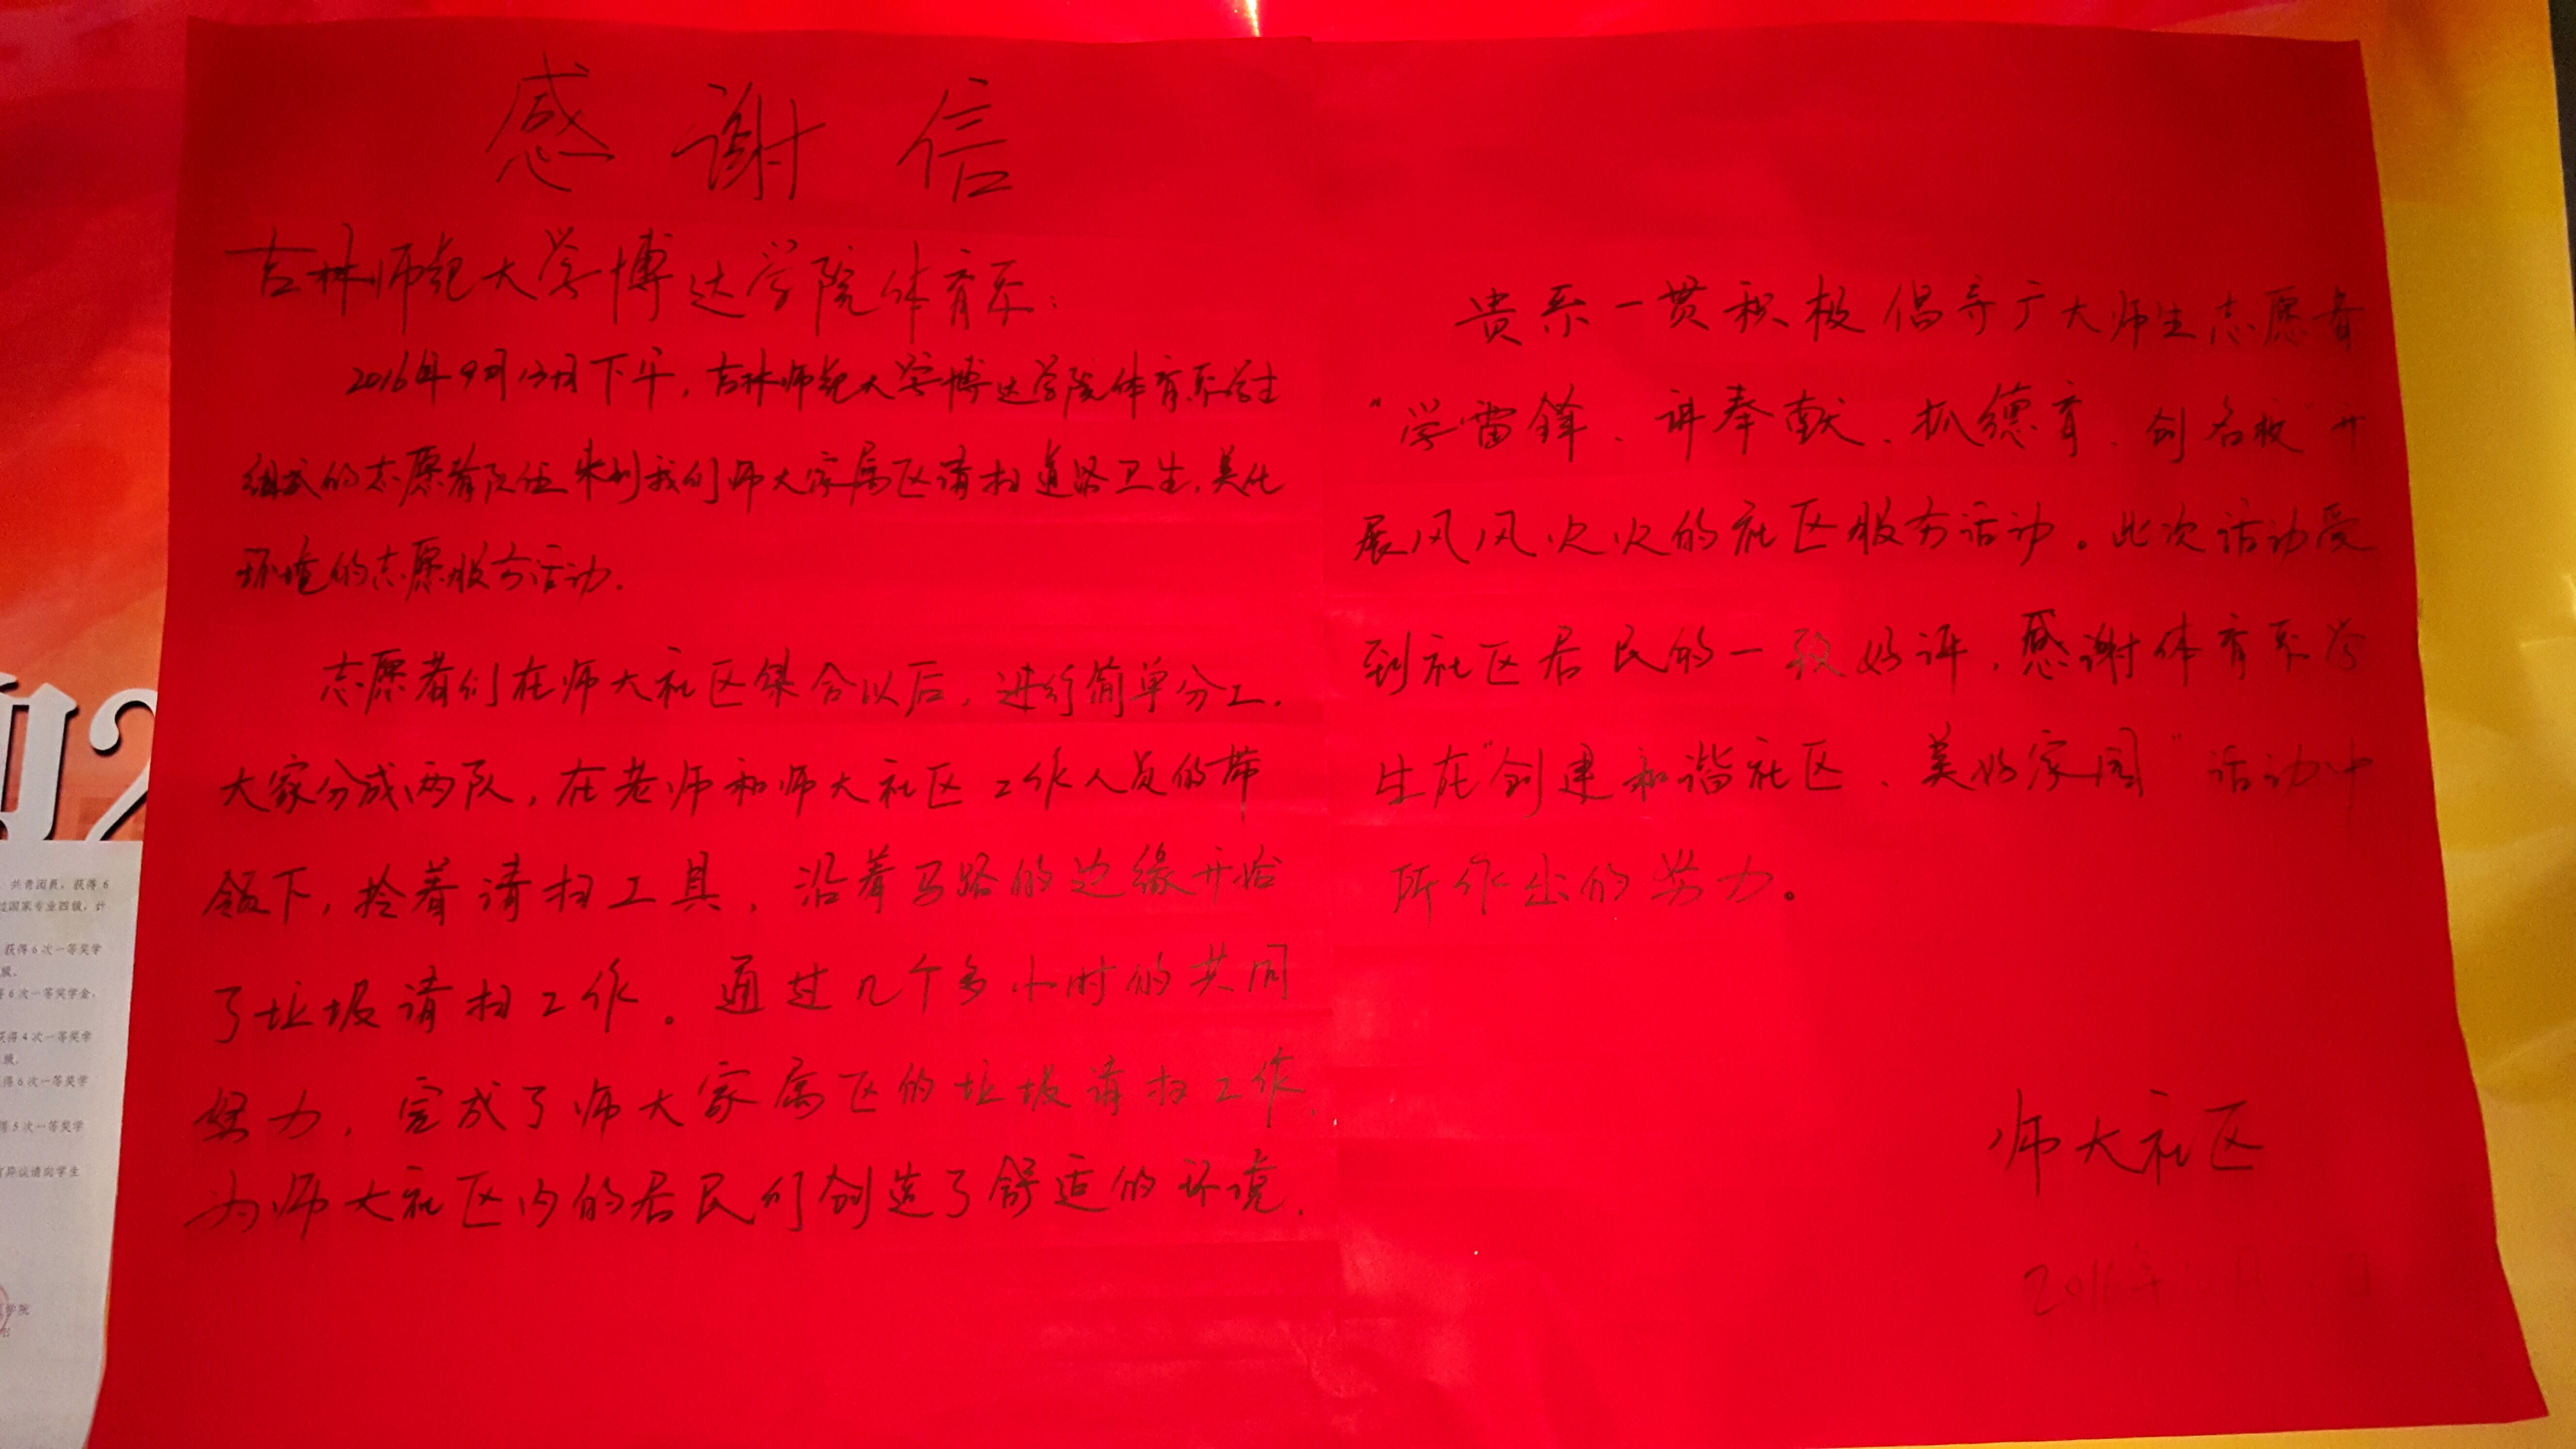 感谢信
吉林师范大学博达学院体育系：
2016年9月13日下午，吉林师范大学博达学院体育系学生
组成的志愿者队伍来到我们师大家属区请扫道路卫生，美化
环境的志愿服务活动.
志愿者们在师大社区集合以后，进行简单分工.
大家分成两队，在老师和师大社区工作人员的带
领下，拎着请扫工具，沿着马路的边缘开始
了垃圾请扫工作。通过几个多小时的共同
努力，完成了师大家属区的垃圾请扫工作，
为师大社区内的居民们创造了舒适的环境.
贵系一贯积极倡导广大师生志愿者
“学雷锋、讲奉献、抓德育、创名校”开
展风风火火的社区服务活动。此次活动受
到社区居民的一致好评，感谢体育系学
生在“创建和谐社区、美好家园”活动中
所作出的努力。
师大社区
2016年
共青团员，获得6
过国家专业四级，计
获得6次一等奖学
级。
得6次一等奖学金，
获得4次一等奖学
级。
得6次一等奖学
得5次一等奖学
有异议请向学生
学院